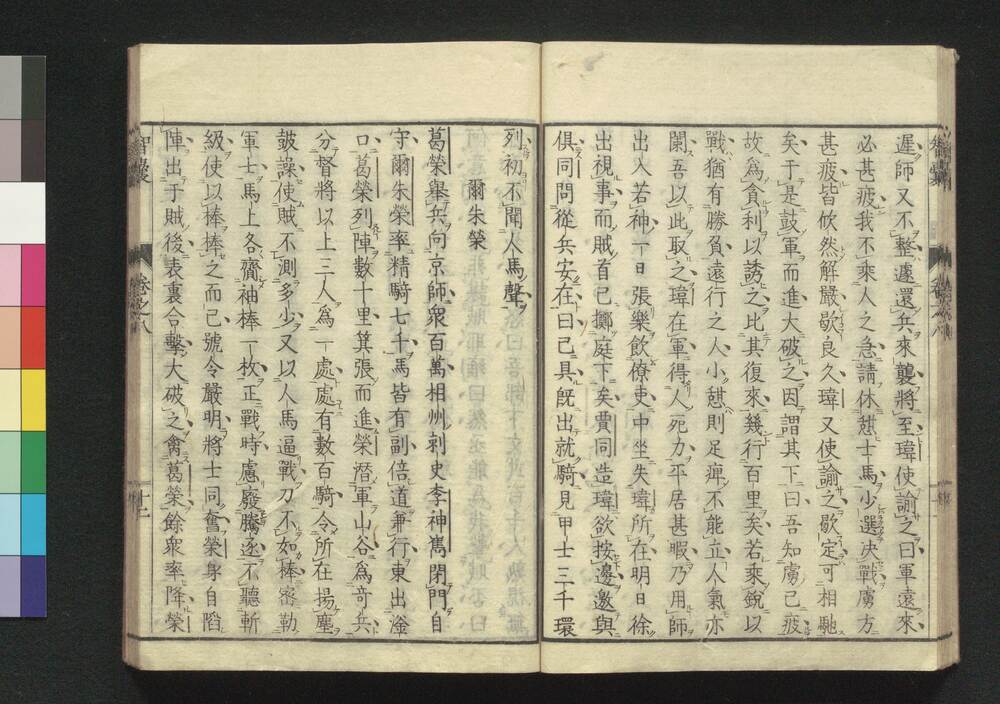 遲師又不整遽還兵來襲將至瑋使諭之曰軍遠來
必甚疲我不乘人之急請休憩士馬少選決戰虜方
甚疲皆忻然解嚴歇良久瑋又使諭之歇定可相馳
矣于是鼓軍而進大破之因謂其下曰吾知虜已疲
故為貪利以誘之比其復來幾行百里矣若乘銳以
戰猶有勝負遠行之人小憩則足痺不能立人氣亦
闌吾以此取之瑋在軍得人死力平居甚暇乃用師
出入若神一日張樂飲僚吏中坐失瑋所在明日徐
出視事而賊首已擲庭下矣賈同造瑋欲按邊邀與
俱同問從兵安在曰已具既出就騎見甲士三千環
列初不聞人馬聲
爾朱榮
葛榮舉兵向京師衆百萬相州刺史李神雋閉門自
守爾朱榮率精騎七千馬皆有副倍道兼行東出滏
口葛榮列陣數十里箕張而進榮潛軍山谷為奇兵
分督將以上三人為一處處有數百騎令所在揚塵
皷譟使賊不測多少又以人馬逼戰刀不如棒密勒
軍士馬上各齎袖棒一枚正戰時慮廢騰逐不聽斬
級使以棒棒之而已號令嚴明將士同奮榮身自陷
陣出于賊後表裏合擊大破之禽葛榮餘衆率降榮
卷之八
十二